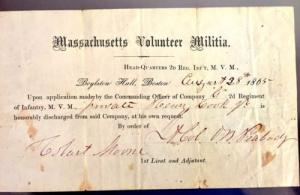 Massachusetts Volunteer Militia.
HEAD-QUARTERS 2D REG. INF'T, M. V. M.,
Boylston Hall, Boston August 28th 1865
Upon application made by the Commanding Officer of Company 2d Regiment
of Infantry, M. V. M., private Cook Jr is
honorably discharged from said Company, at his own request.
By order of
Lt Col Peabody
Moore
1st Lieut and Adjutant.